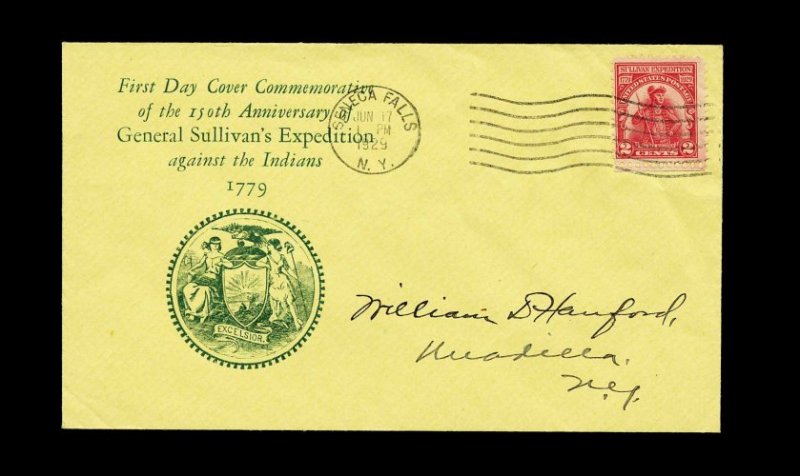 First Day Cover Commemorative
of the 150th Anniversary of
General Sullivan's Expedition
against the Indians
1779
EXCELSIOR
SENECA FALLS
JUN 17
PM
1929
N. Y.
SULLIVAN EXPEDITION
1779 1929
UNITED STATES POSTAGE
2 CENTS 2
William D Hanford,
Unadilla.
N.Y.